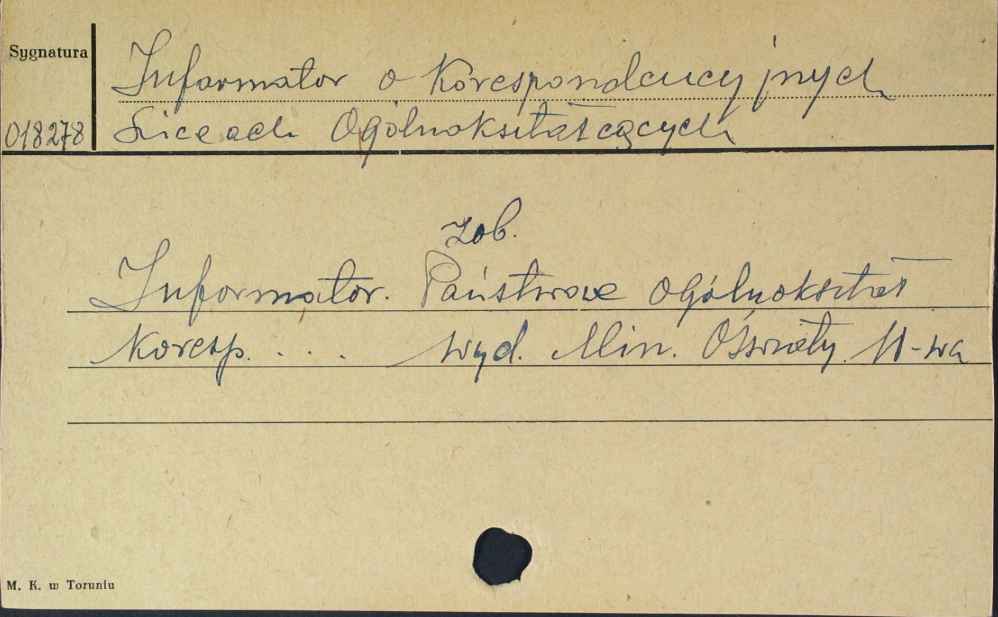 Sygnatura
Informator o Korespondencyjnych
018278
Liceach Ogólnokształcących
zob.
Informator. Państwowe Ogólnokształ
Koresp. . . . Wyd. Min. Oświaty. W-wa
M. K. w Toruniu